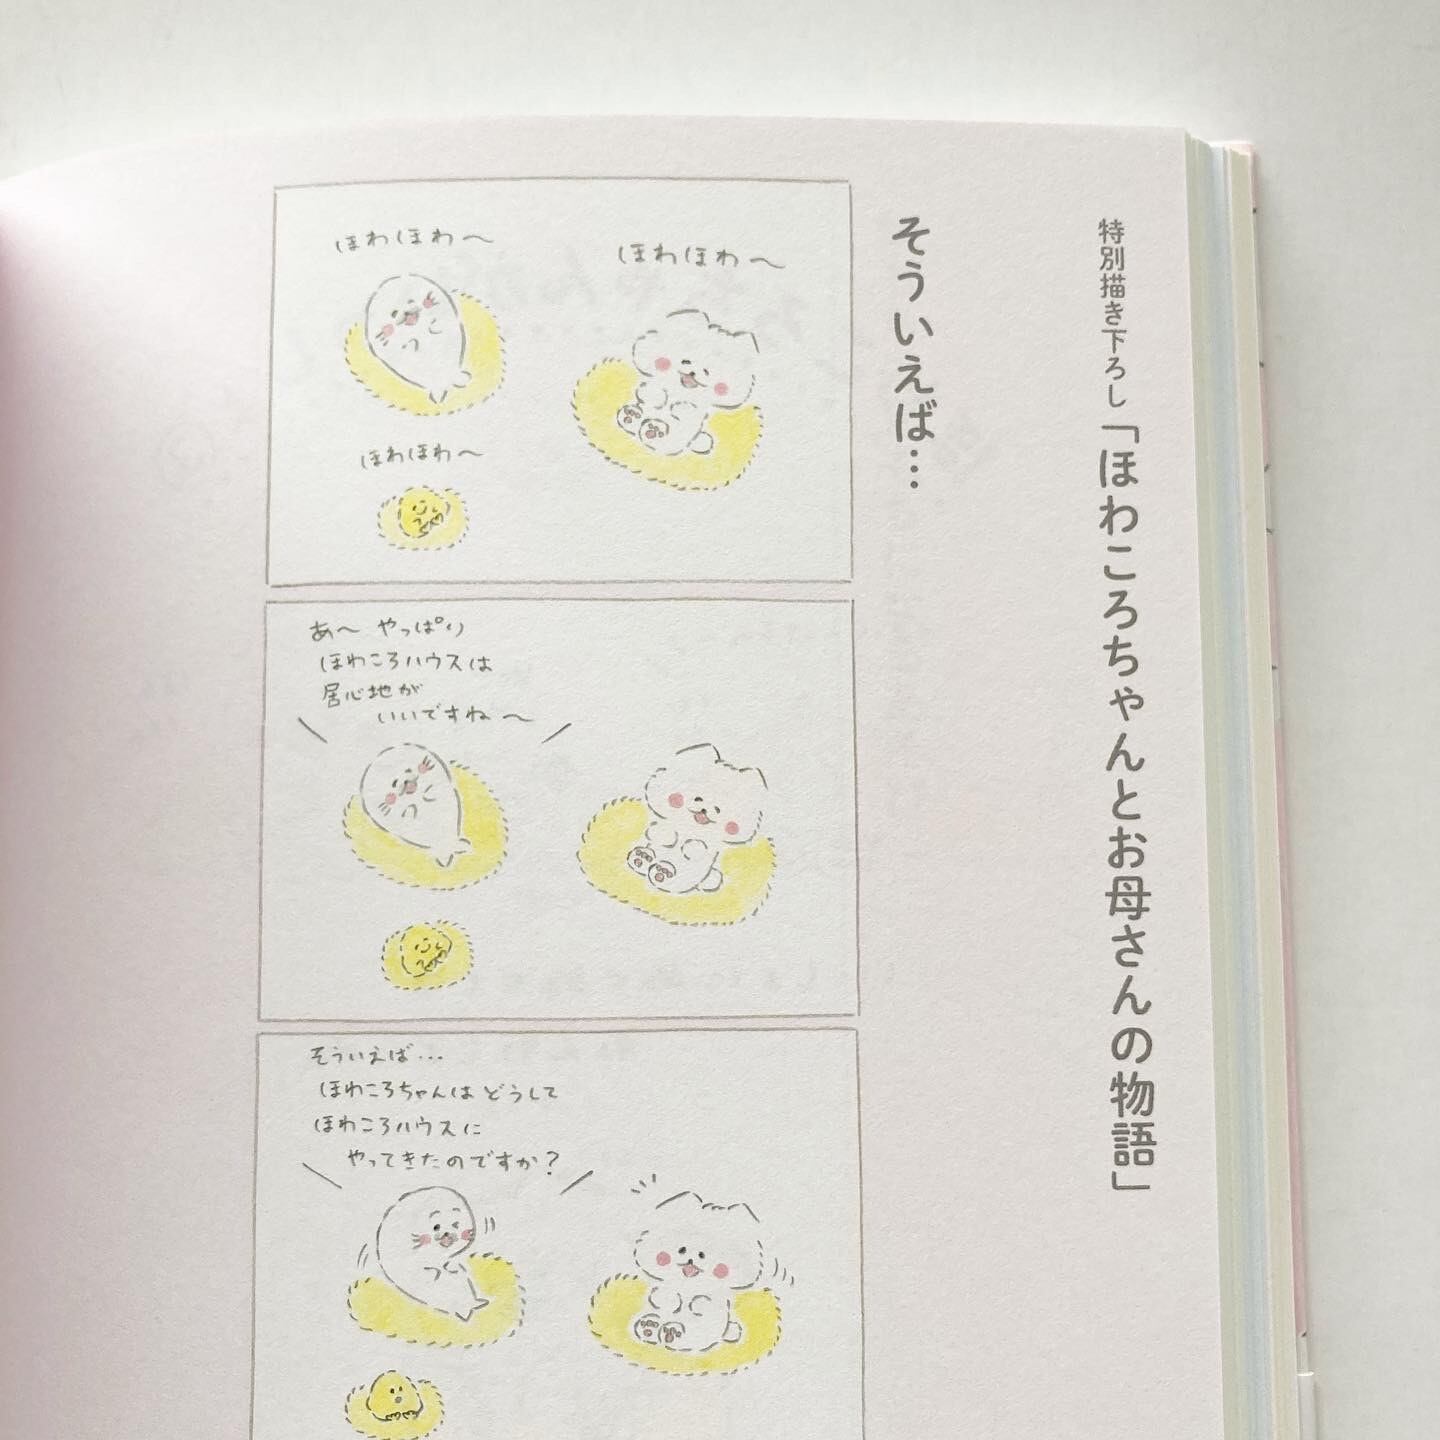 特別描き下ろし「ほわころちゃんとお母さんの物語」
そういえば…
ほわほわ〜
ほわほわ〜
ほわほわ〜
あ〜 やっぱり
ほわころハウスは
居心地が
いいですね〜
そういえば…
ほわころちゃんはどうして
ほわころハウスに
やってきたのですか?